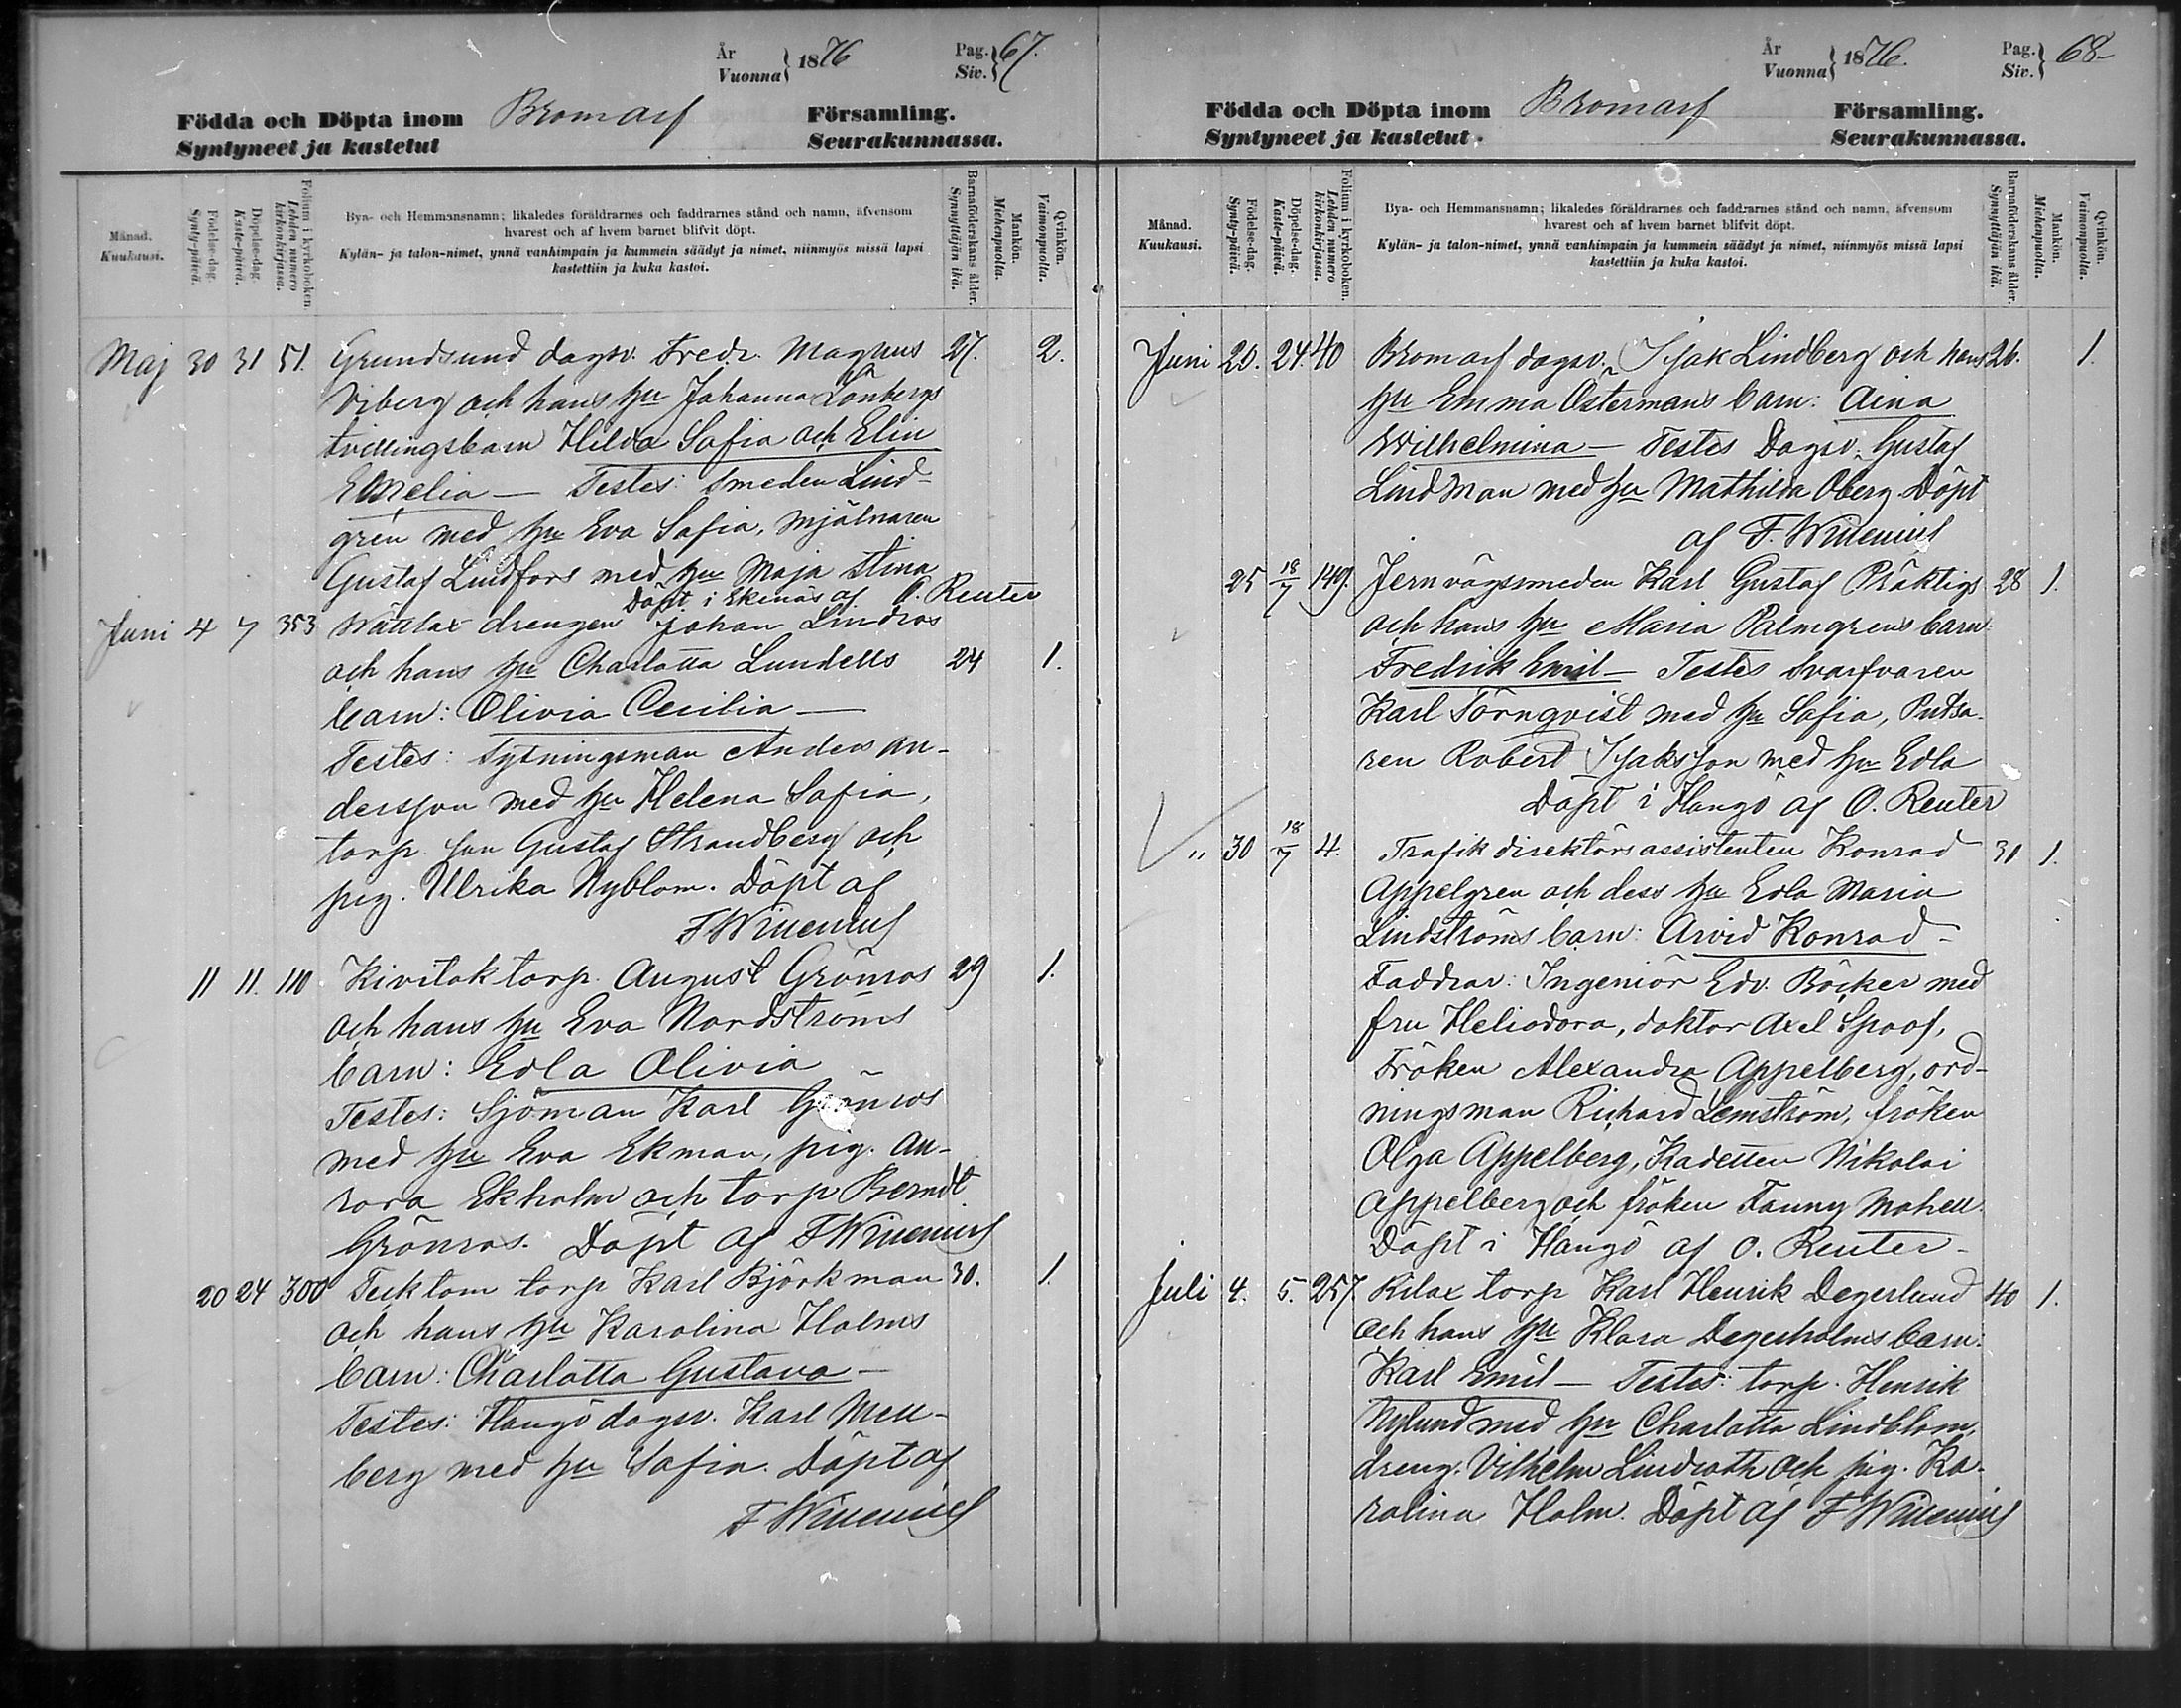 År
Vuonna } 1876
Pag.
Siv. } 67.
Födda och Döpta inom Bromarf Församling.
Syntyneet ja kastetut Seurakunnassa.
Månad.
Kuukausi.
Födelse-dag.
Synty-päivä.
Döpelse-dag.
Kaste-päivä.
Folium i kyrkoboken.
Lehden numero
kirkonkirjassa.
Bya- och Hemmansnamn; likaledes föräldrarnes och faddrarnes stånd och namn, äfvensom
hvarest och af hvem barnet blifvit döpt.
Kylän- ja talon-nimet, ynnä vanhimpain ja kummein säädyt ja nimet, niinmyös missä lapsi
kastettiin ja kuka kastoi.
Barnaföderskans ålder.
Synnyttäjän ikä.
Mankön.
Miehenpuolta.
Qvinkön.
Vaimonpuolta.
Maj 30 31 51. Grundsund dagsv. Fredr. Magnus 27. 2.
Viberg och hans hu Johanna Lönbergs
tvillingsbarn Hilda Sofia och Elin
Emelia — Testes: Smeden Lind-
gren med hu Eva Sofia, mjölnaren
Gustaf Lindfors med hu Maja Stina
Döpt i Ekenäs af O. Reuter
Juni 4 7 353 Wättlax drengen Johan Lindros
och hans hu Charlotta Lundells 24 1.
barn: Olivia Cecilia —
Testes: Sytningsman Anders An-
dersson med hu Helena Sofia,
torp. son Gustaf Strandberg och
pig. Ulrika Nyblom. Döpt af
F Winenius
11 11. 110 Kivitok torp. August Grönros 29 1.
och hans hu Eva Nordströms
barn: Edla Olivia —
Testes: Sjöman Karl Grönros
med hu Eva Ekman, pig. Au-
rora Ekholm och torp Berndt
Grönros. Döpt af F Winenius
20 24 300 Tecktom torp Karl Björkman 30. 1.
och hans hu Karolina Holms
barn: Charlotta Gustava —
Testes: Hangö dagsv. Karl Mell-
berg med hu Sofia. Döpt af
F Winenius
År
Vuonna } 1876.
Pag.
Siv. } 68
Födda och Döpta inom Bromarf Församling.
Syntyneet ja kastetut Seurakunnassa.
Månad.
Kuukausi.
Födelse-dag.
Synty-päivä.
Döpelse-dag.
Kaste-päivä.
Folium i kyrkoboken.
Lehden numero
kirkonkirjassa.
Bya- och Hemmansnamn; likaledes föräldrarnes och faddrarnes stånd och namn, äfvensom
hvarest och af hvem barnet blifvit döpt.
Kylän- ja talon-nimet, ynnä vanhimpain ja kummein säädyt ja nimet, niinmyös missä lapsi
kastettiin ja kuka kastoi.
Barnaföderskans ålder.
Synnyttäjän ikä.
Mankön.
Miehenpuolta.
Qvinkön.
Vaimonpuolta.
Juni 20. 24. 40 Bromarf dagsv. Isak Lindberg och hans 26. 1.
hu Emma Östermans barn: Aina
Wilhelmina — Testes Dagsv. Gustaf
Lindman med hu Mathilda Öberg Döpt
af F. Winenius
25 18/7 149. Jernvägssmeden Karl Gustaf Präktigs 28 1.
och hans hu Maria Palmgrens barn
Fredrik Emil — Testes Svarfvaren
Karl Törnqvist med hu Sofia, Putsa-
ren Robert Isaksson med hu Edla
Döpt i Hangö af O. Reuter
" 30 18/7 4. Trafikdirektörsassistenten Konrad 31 1.
Appelgren och dess hu Edla Maria
Lindströms barn: Arvid Konrad —
Faddrar: Ingeniör Edv. Böcker med
fru Heliodora, doktor Axel Spoof,
Fröken Alexandra Appelberg, ord-
ningsman Richard Lemström, fröken
Olga Appelberg, Kadetten Nikolai
Appelberg och fröken Fanny Mohell
Döpt i Hangö af O. Reuter —
Juli 4. 5. 257. Rilax torp Karl Henrik Degerlund 40 1.
och hans hu Klara Degerholms barn.
Karl Emil — Testes: torp. Henrik
Nylund med hu Charlotta Lindblom,
dreng. Vilhelm Lindroth och pig. Ka-
rolina Holm. Döpt af F Winenius